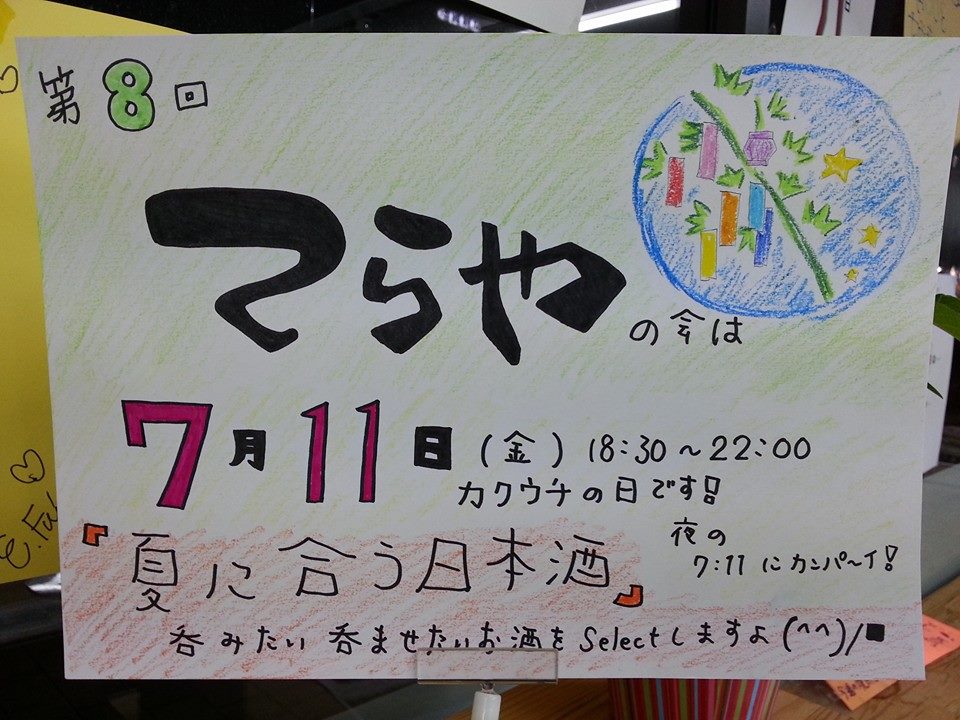 第8回
てらやの会は
7月11日(金) 18:30～22:00
カクウチの日です!
夜の
7:11にカンパ～イ!
『夏に合う日本酒』
呑みたい 呑ませたいお酒をSelectしますよ(^^)/■